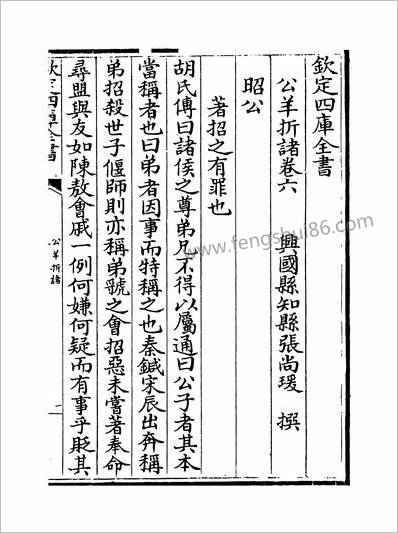 欽定四庫全書
公羊折諸卷六　興國縣知縣張尚瑗　撰
昭公
著招之有罪也
胡氏傳曰諸侯之尊弟兄不得以屬通曰公子者其本
當稱者也曰弟者因事而特稱之也秦鍼宋辰出奔稱
弟招殺世子偃師則亦稱弟虢之會招惡未嘗著奉命
尋盟與友如陳敖會戚一例何嫌何疑而有事乎貶其
欽定四庫全書
公羊折諸
一
www.fengshui86.com